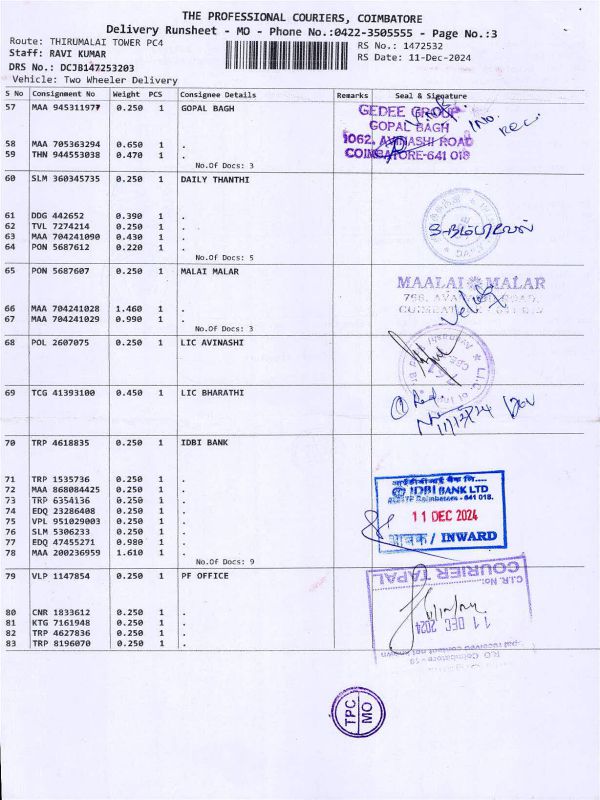 THE PROFESSIONAL COURIERS, COIMBATORE
Delivery Runsheet - MO - Phone No.:0422-3505555 - Page No.:3
Route: THIRUMALAI TOWER PC4
Staff: RAVI KUMAR
DRS No.: DCJB147253203
Vehicle: Two Wheeler Delivery
RS No.: 1472532
RS Date: 11-Dec-2024
S No Consignment No Weight PCS Consignee Details Remarks Seal & Signature
57 MAA 945311977 0.250 1 GOPAL BAGH
GEDEE GROUP
GOPAL BAGH
1062, AVINASHI ROAD
COIMBATORE-641 018
58 MAA 705363294 0.650 1 .
59 THN 944553038 0.470 1 .
No.Of Docs: 3
60 SLM 360345735 0.250 1 DAILY THANTHI
61 DDG 442652 0.390 1 .
62 TVL 7274214 0.250 1 .
63 MAA 704241090 0.430 1 .
64 PON 5687612 0.220 1 .
No.Of Docs: 5
65 PON 5687607 0.250 1 MALAI MALAR
MAALAI MALAR
66 MAA 704241028 1.460 1 .
67 MAA 704241029 0.990 1 .
No.Of Docs: 3
68 POL 2607075 0.250 1 LIC AVINASHI
69 TCG 41393100 0.450 1 LIC BHARATHI
11/12/24
70 TRP 4618835 0.250 1 IDBI BANK
71 TRP 1535736 0.250 1 .
72 MAA 868084425 0.250 1 .
73 TRP 6354136 0.250 1 .
74 EDQ 23286408 0.250 1 .
75 VPL 951029003 0.250 1 .
76 SLM 5306233 0.250 1 .
77 EDQ 47455271 0.980 1 .
78 MAA 200236959 1.610 1 .
No.Of Docs: 9
IDBI BANK LTD
Coimbatore - 641 018.
11 DEC 2024
आवक / INWARD
79 VLP 1147854 0.250 1 PF OFFICE
80 CNR 1833612 0.250 1 .
81 KTG 7161948 0.250 1 .
82 TRP 4627836 0.250 1 .
83 TRP 8196070 0.250 1 .
COURIER TAPAL
C.I.R. No:
11 DEC 2024
R.O. Coimbatore - 18
TPC
MO